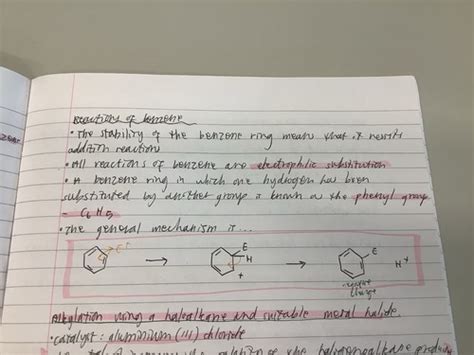 Reactions of benzene
• The stability of the benzene ring means that it resists
addition reactions
• All reactions of benzene are electrophilic substitution
• A benzene ring in which one hydrogen has been
substituted by another group is known as the phenyl group
- C6H5
• The general mechanism is...
E+ E H + E H+
Alkylation using a haloalkane and suitable metal halide
• catalyst: aluminium (III) chloride
of the halogenoalkane